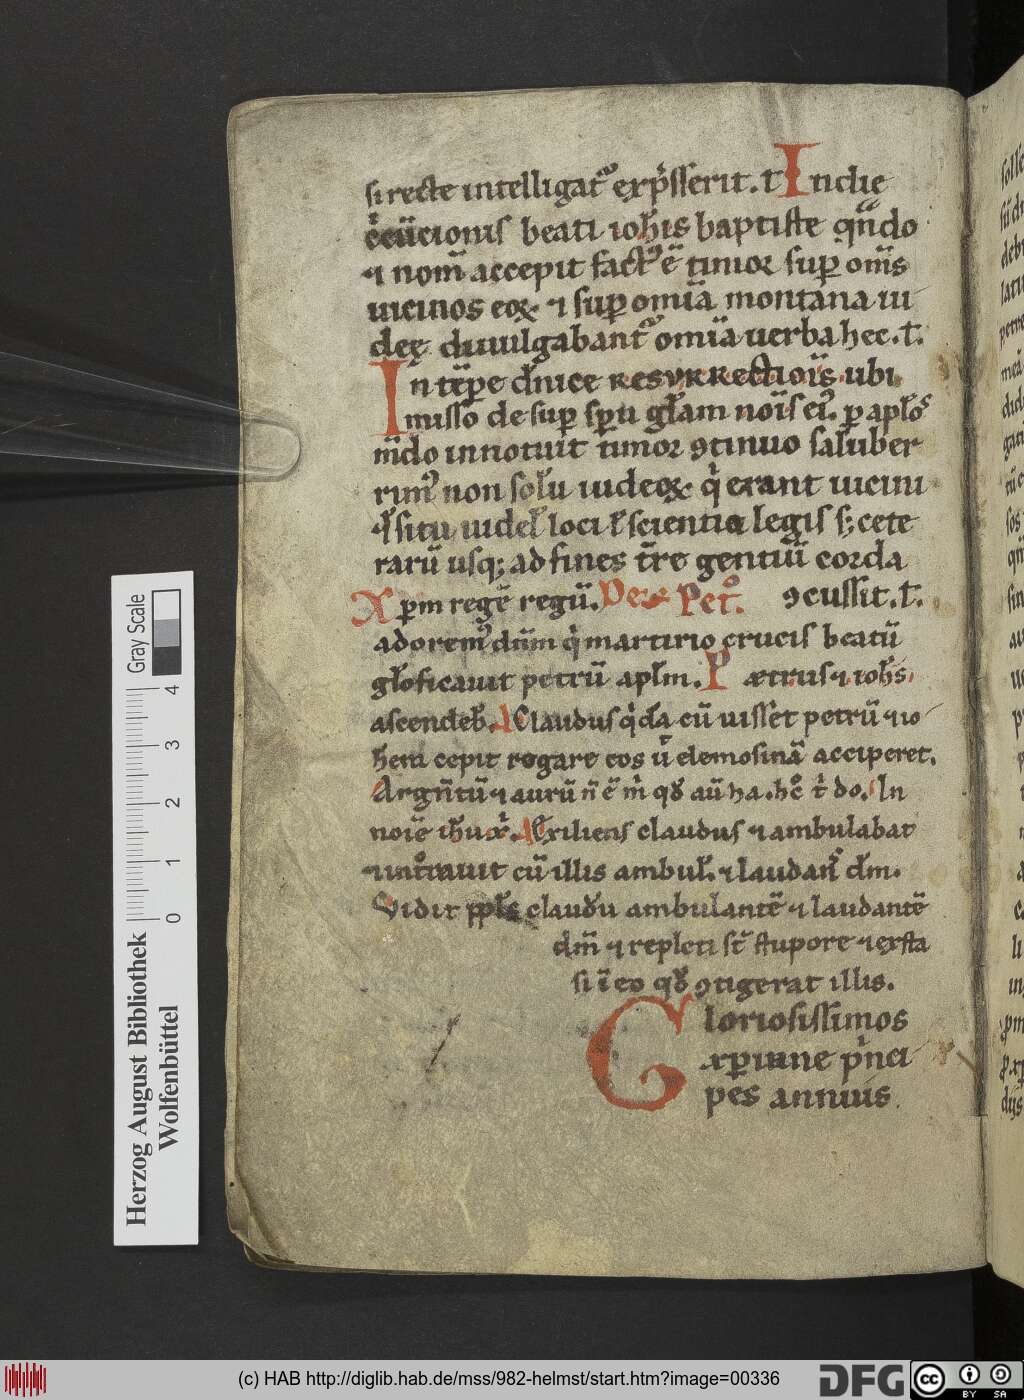 si recte intelligat᷑ exp̄sserit. t̄ In die
c̄cūcionis beati ioh̄is baptiste qn̄do
⁊ nom̄ accepit fact᷑ ē timor sup om̄s
uicinos eoꝝ ⁊ sup omīa montana iu
deę diuulgabant᷑ omīa uerba hec. t̄.
In tēp̄e dn̄ice resurrectiōis ubi
misso desup sp̄u gl̄am nōis ei᷒. ꝑ apl̄os
mūdo innotuit timor ꝯtinuo saluber
rim᷒ non solū iudeoꝝ q̄ erant uicini
ł situ iudel̄ loci ł scientia legis sꝫ cete
rarū usqꝫ ad fines t̄re gentiū corda
Xpm regē regū. De s. Pet̄. ꝯcussit. t̄.
adorem᷒ dn̄m q̄ martirio crucis beatū
gl̄oficauit petrū apl̄m. P ætrus ⁊ ioh̄s
ascendeb̄. A Claudus q̄dā cū uisset petrū ⁊ io
hem cepit rogare eos ut̄ elemosinā acciperet.
Argn̄tū ⁊ aurū n̄ ē m̄ qd̄ aū ha. hc̄ t̄ do. In
noīe ih̄u xp̄i. A Exiliens claudus ⁊ ambulabat
⁊ intrauit cū illis ambul̄. ⁊ laudan̄s dm̄.
Vidit ppl̄s claudū ambulantē ⁊ laudantē
dm̄ ⁊ repleti st̄ stupore ⁊ exsta
si ī eo qd̄ ꝯtigerat illis.
Gloriosissimos
xp̄iane p̄nci
pes annuis
Herzog August Bibliothek
Wolfenbüttel
Gray Scale
0 1 2 3 4
(c) HAB http://diglib.hab.de/mss/982-helmst/start.htm?image=00336
DFG
cc BY SA